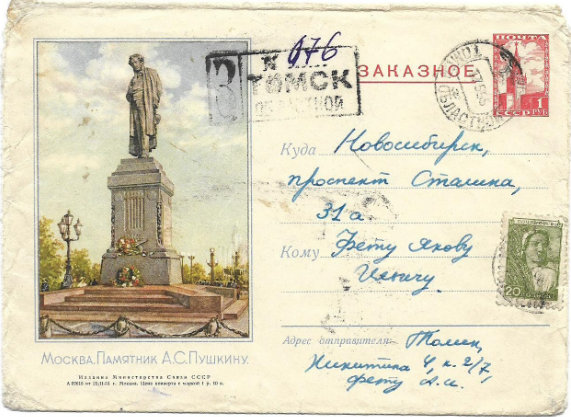 № 076
З ТОМСК
ОБЛАСТНОЙ
ЗАКАЗНОЕ
ПОЧТА
1
РУБ
СССР
ТОМСК
ОБЛАСТНОЙ
Куда Новосибирск,
проспект Сталина,
31а
Кому Фету Якову
Ильичу.
20
Адрес отправителя: Томск,
Никитина 4, к. 2/7,
Фету А.И.
МОСКВА. ПАМЯТНИК А.С. ПУШКИНУ.
Издание Министерства Связи СССР
г. Москва. Цена конверта с маркой 1 р.